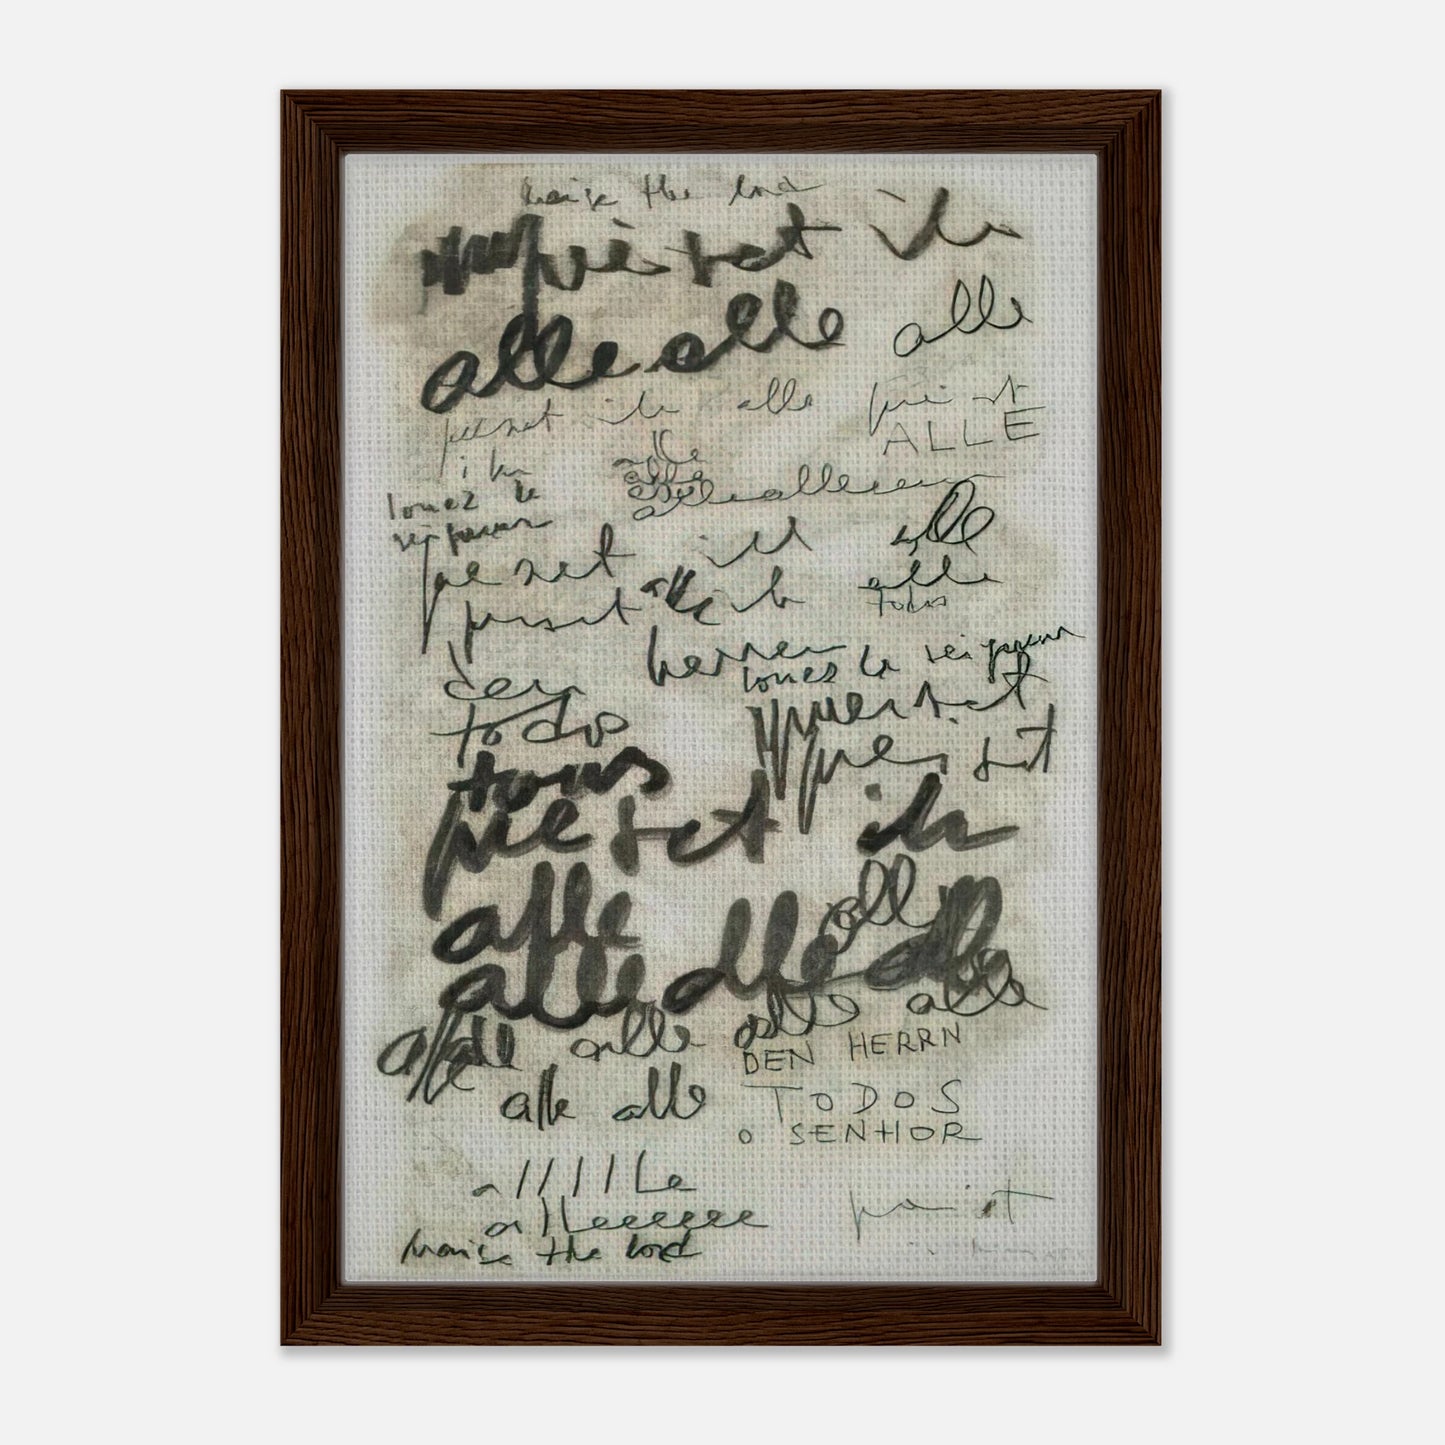 praise the lord
preiset ihn
alle alle alle
preiset ihn alle preist
ALLE
ihn alle
louez le alle
alle alleeeee
seigneur alle
preiset ihn alle
preiset alle ihn alle
todos
herren louez le seigneur
den
preiset
todos
preiset
tous
preiset ihn
alle alle
alle alle alle
alle alle alle alle
DEN HERRN
alle alle TODOS
O SENHOR
allllle
alleeeeee preist
praise the lord